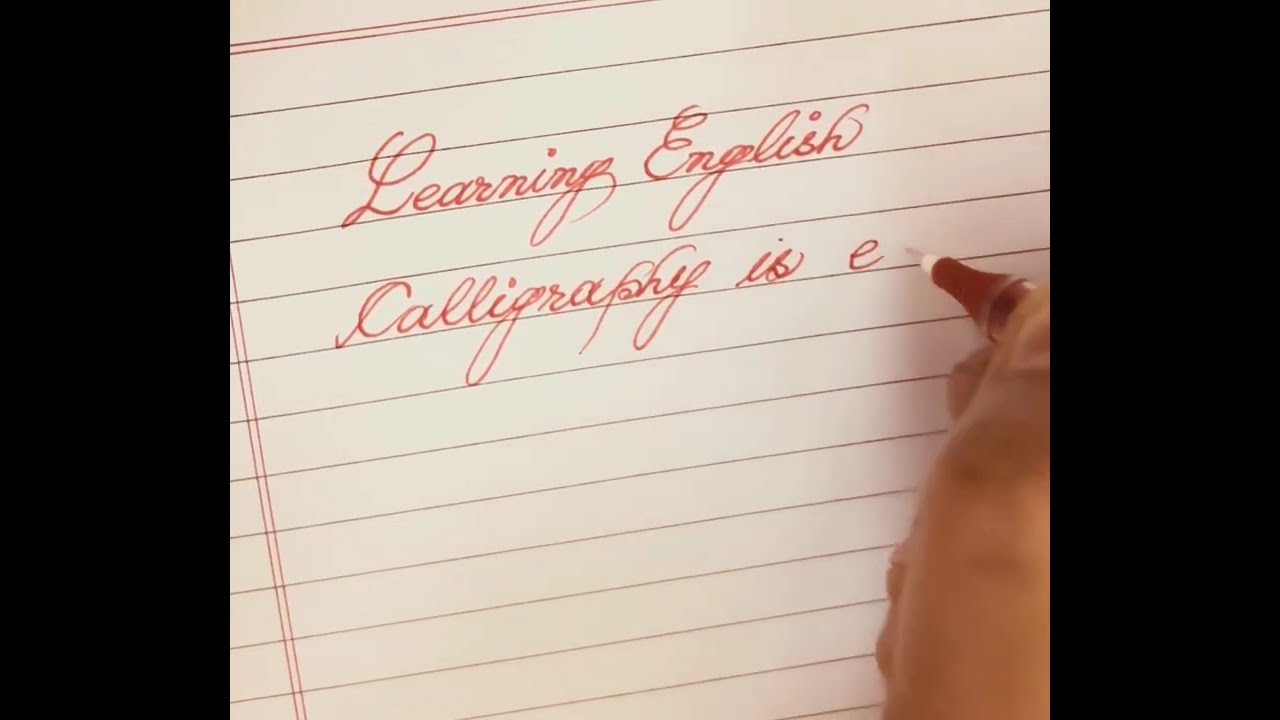 Learning English
Calligraphy is e